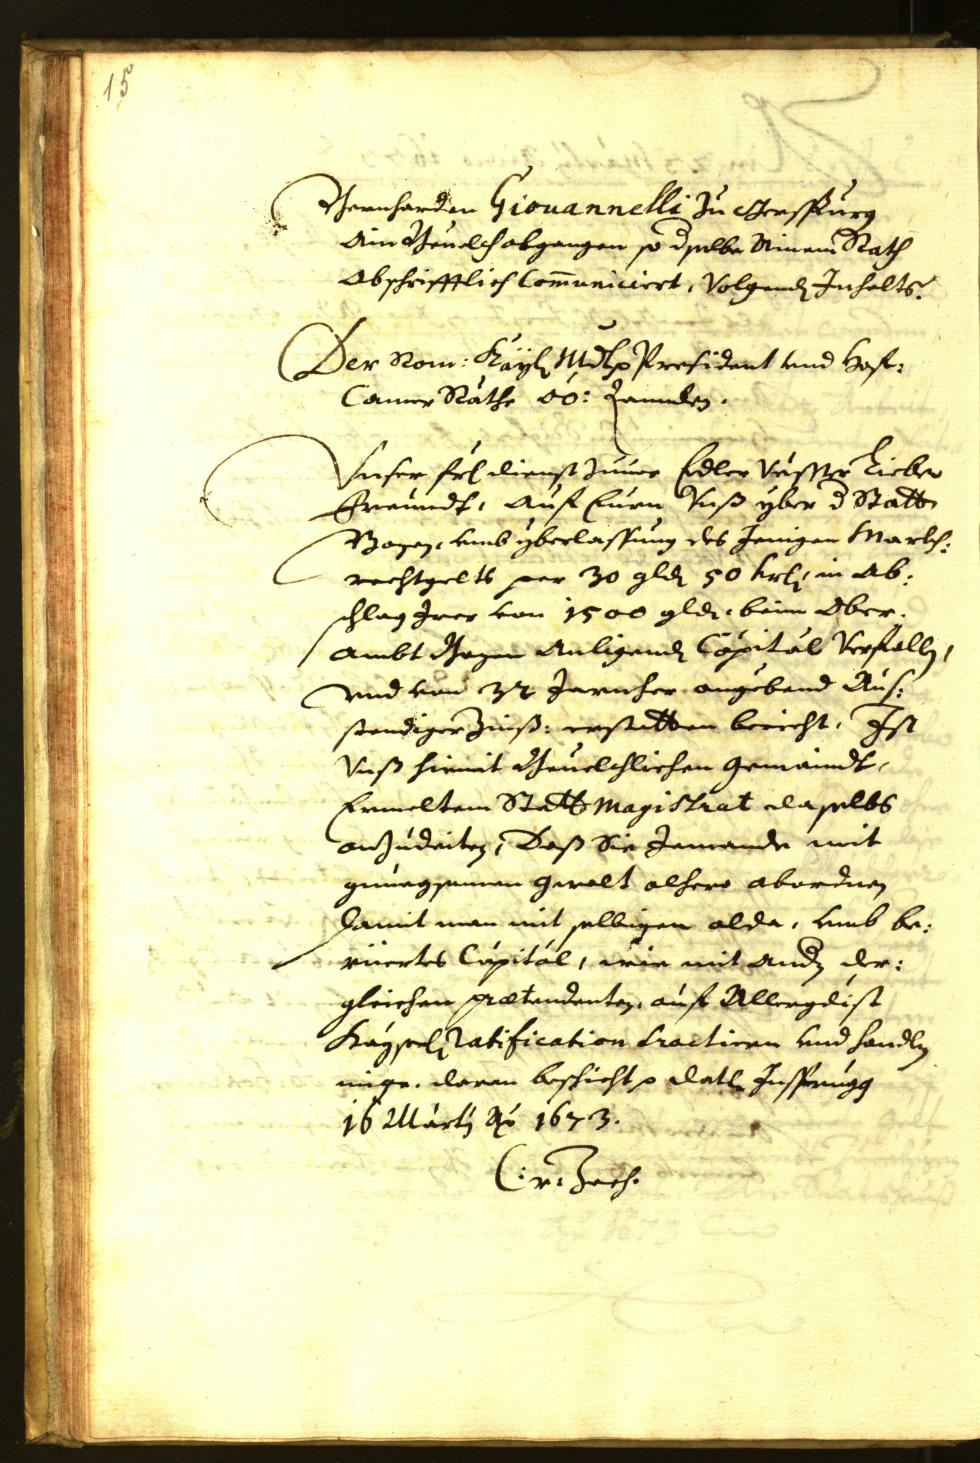 15
Bernharden Giouannelli zu Gerspurg
Ain Beuelch abgangen so dselbe Ainem Rath
Abschrifftlich Com̄uniciert, Volgendts Inhalts.
Der Röm: Kayl: Mtt: President vnd Hof:
Camer Räthe OÖ: Lannden.
Vnser frl dienst zuuor Edler Vesster Lieber
Freundt, Auf Eurn Vnß yber d Statt
Bozen, vmb yberlassung des Jenigen March:
rechtgelts per 30 gldn 50 krl, in Ab:
schlag Irer von 1500 gldn beim Ober:
ambt Bozen Anligendn Capital Verfalln,
vnd von 32 Jarn her angebend Auß:
stendiger Zinß: erstatten bericht, Ist
Vnß hiemit Beuelchlichen gemaindt,
Ermeltem Statt Magistrat daselbs
anzudeiten, Daß Sie Jemande mit
genuegsamen gwalt alhero abordnen
damit man mit selbigen alda, vmb be:
rüertes Capital, wie mit andn der:
gleichen prætendenten, auf Allergdist
Kayserl: ratification tractiern vnd handln
müge, daran beschicht p datl Insprugg
16 Marty Aō 1673.
C: v: Zech.